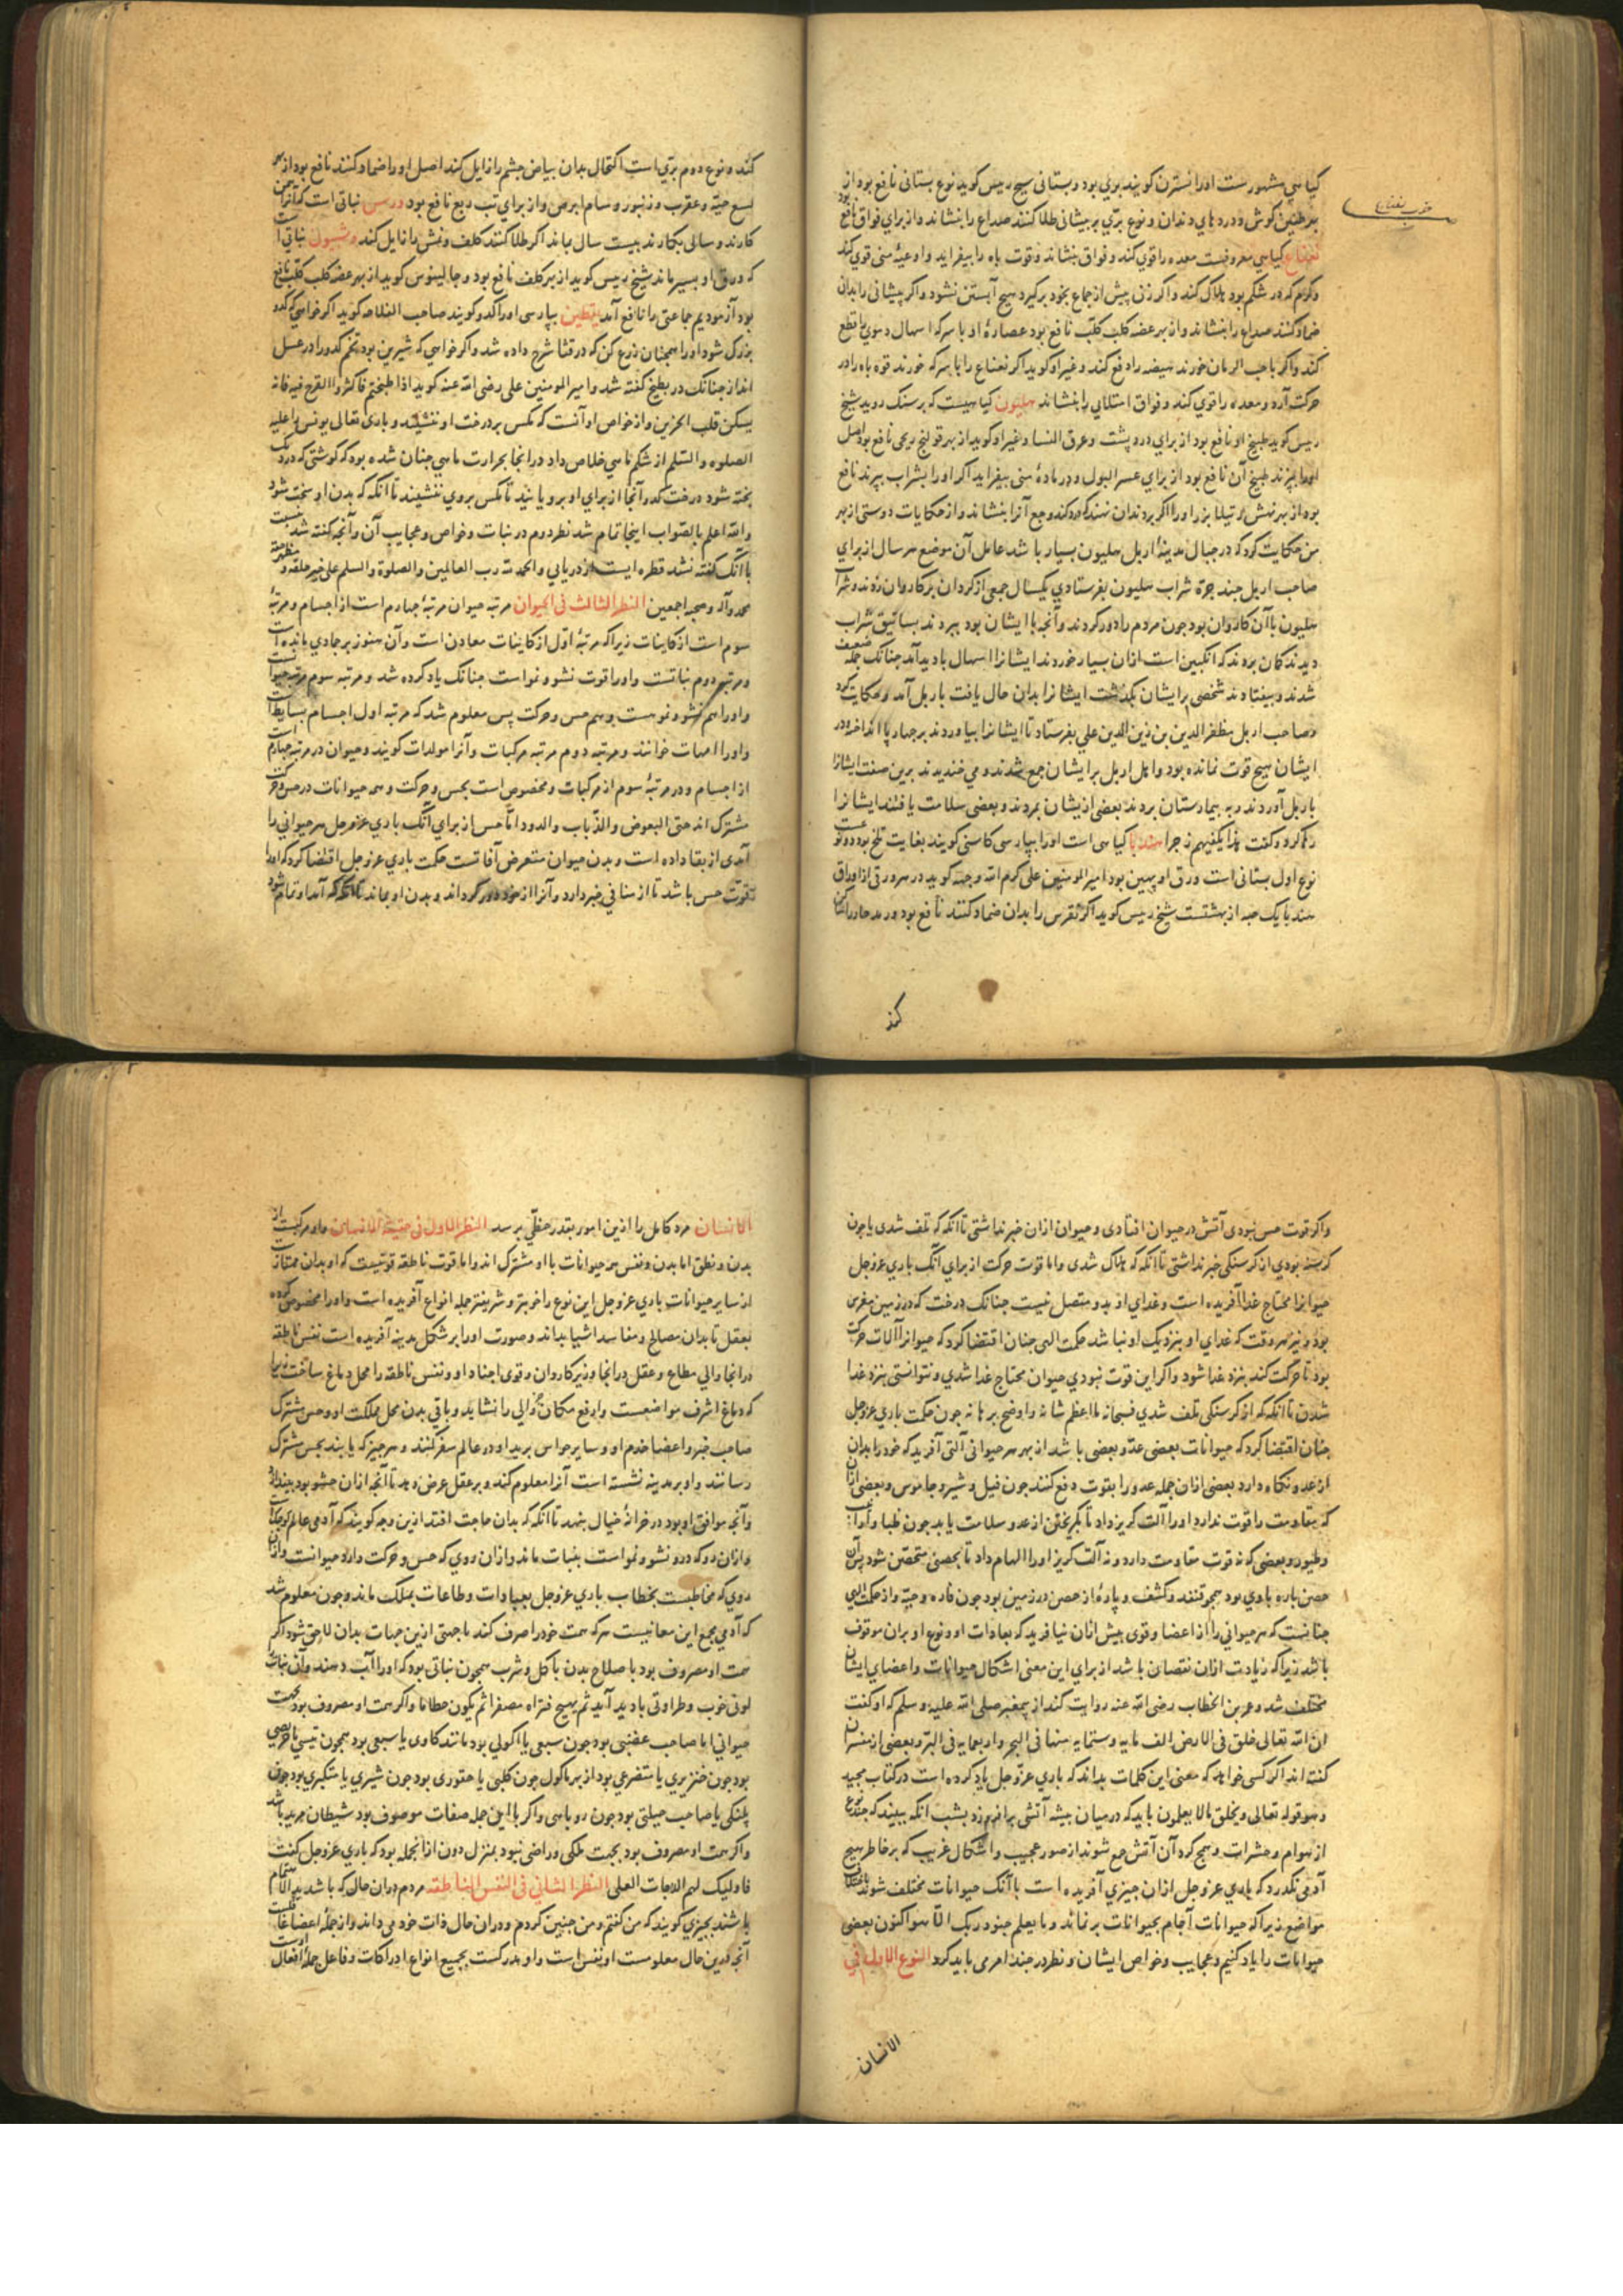 کیاهی مشهورست اورا نسترن کویند برّی بود و بستانی شیخ رییس کوید نوع بستانی نافع بود از
بهر طنین کوش و دردهای دندان و نوع برّی بر پیشانی طلا کنند صداع را بنشاند و از برای فواق نافع بود
نعناع کیاهی معروفست معده را قوی کند و فواق بنشاند و قوت باه را بیفزاید و اوعیهٔ منی قوی کند
و کرم که در شکم بود هلاک کند و اکر زن پیش از جماع بخود برکیرد هیچ آبستن نشود و اکر پیشانی را بدان
ضماد کنند صداع را بنشاند و از بهر عضه کلب کلب نافع بود عصارهٔ او با سرکه اسهال دموی را قطع
کند و اکر با حب الرمان خورند هیضه را دفع کند و غیر او کوید اکر نعناع را با سرکه خورند قوه باه را در
حرکت آرد و معده را قوی کند و فواق امتلایی را بنشاند هلیون کیاهیست که بر سنک روید شیخ
رییس کوید طبیخ او نافع بود از برای درد پشت و عرق النسا و غیر او کوید از بهر قولنج ریحی نافع بود اصل
اورا بپزند طبیخ آن نافع بود از برای عسر البول و در مادهٔ منی بیفزاید اکر اورا بشراب بپزند نافع
بود از بهر نهش رتیلا بزر اورا اکر بر دندان نهند که درد کند وجع آنرا بنشاند و از حکایات دوستی از بهر
من حکایت کرد که در جبال مدینهٔ اربل هلیون بسیار باشد عامل آن موضع هر سال از برای
صاحب اربل چند جرّه شراب هلیون بفرستادی یکسال جمعی از کردان بر کاروان زدند و شراب
هلیون با آن کاروان بود چون مردم را دور کردند و آنچه با ایشان بود ببردند بساتیق شراب
دیدند کمان بردند که انکبین است ازان بسیار خوردند ایشانرا اسهال بادید آمد چنانک جمله ضعیف
شدند و بیفتادند شخصی بر ایشان بکذشت ایشانرا بدان حال یافت باربل آمد و حکایت کرد
صاحب اربل مظفر الدین بن زین الدین علی بفرستاد تا ایشانرا بیاوردند بر چهار پا انداخته و در
ایشان هیچ قوت نمانده بود و اهل اربل بر ایشان جمع شدند و می خندیدند برین صفت ایشانرا
باربل آوردند و به بیمارستان بردند بعضی ازیشان بمردند و بعضی سلامت یافتند ایشانرا
رها کرد و کفت هذا یکفیهم زجرا هندبا کیاهی است اورا بپارسی کاسنی کویند بغایت تلخ بود و دو نوعست
نوع اول بستانی است ورق او پهن بود امیر المومنین علی کرم الله وجهه کوید در هر ورقی از اوراق
هندبا یک حبه از بهشتست شیخ رییس کوید اکر نقرس را بدان ضماد کنند نافع بود و رمد حار را ساکن
کند
کند و نوع دوم برّی است اکتحال بدان بیاض چشم را زایل کند اصل اورا ضماد کنند نافع بود از بهر
لسع حیّه و عقرب و زنبور و سام ابرص و از برای تب ربع نافع بود ورس نباتی است که آنرا بیمن
کارند و سالی بکارند بیست سال بماند اکر طلا کنند کلف و نمش را زایل کند وشبول نباتی است
که ورق او بسیر ماند شیخ رییس کوید از بهر کلف نافع بود و جالینوس کوید از بهر عضه کلب کلب نافع
بود آزمودیم جماعتی را نافع آمد یقطین بپارسی اورا کدو کویند صاحب الفلاحه کوید اکر خواهی که کدو
بزرک شود اورا همچنان زرع کن که در قثا شرح داده شد و اکر خواهی که شیرین بود تخم کدو را در عسل
انداز چنانک در بطیخ کفته شد و امیر المومنین علی رضی الله عنه کوید اذا طبختم فاکثروا القرع فیه فانه
یسکن قلب الحزین و از خواص او آنست که مکس بر درخت او ننشیند و باری تعالی یونس را علیه
الصلوه و السلم از شکم ماهی خلاص داد در انجا بحرارت ماهی چنان شده بود که کوشتی که در دیک
پخته شود درخت کدو آنجا از برای او برویانید تا مکس بروی ننشیند تا آنکه که بدن او سخت شود
و الله اعلم بالصّواب اینجا تمام شد نظر دوم در نبات و خواص و عجایب آن و آنچه کفته شد بنسبت
با آنک کفته نشد قطره ایست از دریایی و الحمد لله رب العالمین والصلوة والسلم علی خیر خلقه و مظهر حقه
محمد وآله وصحبه اجمعین النظر الثالث فی الحیوان مرتبه حیوان مرتبهٔ چهارم است از اجسام و مرتبهٔ
سوم است از کاینات زیرا که مرتبهٔ اوّل از کاینات معادن است و آن هنوز بر جمادی مانده است
و مرتبهٔ دوم نباتست و اورا قوت نشو و نمو است چنانک یاد کرده شد و مرتبه سوم مرتبه حیوانست
و اورا هم نشو و نموست و هم حس و حرکت پس معلوم شد که مرتبه اول اجسام بسایط است
و اورا امهات خوانند و مرتبه دوم مرتبه مرکبات و آنرا مولدات کویند و حیوان در مرتبه چهارم است
از اجسام و در مرتبهٔ سوم از مرکبات و مخصوص است بحس و حرکت و همه حیوانات در حس و حرکت
مشترک اند حتی البعوض والذّباب والدود امّا حس از برای آنک باری عزوجل هر حیوانی را
آمدی از بقا داده است و بدن حیوان متعرض آفاتست حکمت باری عزوجل اقتضا کرد که اورا
قوّت حس باشد تا از منافی خبر دارد و آنرا از خود دور کرداند و بدن او بماند تا آنکه که آمد او تمام شود
واکر قوت حس نبودی آتش در حیوان افتادی و حیوان ازان خبر نداشتی تا آنکه که تلف شدی یا چون
کرسنه بودی از کرسنکی خبر نداشتی تا آنکه که هلاک شدی و اما قوت حرکت از برای آنک باری عزوجل
حیوانرا محتاج غذا آفریده است و غذای او بدو متصل نیست چنانک درخت که در زمین مغرس
بود و نیز هر وقت که غذای او بنزدیک او نباشد حکمت الهی چنان اقتضا کرد که حیوانرا آلات حرکت
بود تا حرکت کند بنزد غذا شود و اکر این قوت نبودی حیوان محتاج غذا شدی و نتوانستی بنزد غذا
شدن تا آنکه که از کرسنکی تلف شدی فسبحانه ما اعظم شانه و اوضح برهانه چون حکمت باری عزوجل
چنان اقتضا کرد که حیوانات بعضی عدو بعضی باشد از بهر هر حیوانی آلتی آفرید که خود را بدان
از عدو نکاه دارد بعضی ازان جمله عدو را بقوت دفع کنند چون فیل و شیر و جاموس و بعضی ازان
که مقاومت را قوت ندارد اورا آلت کریز داد تا بکریختن از عدو سلامت یابد چون ظبا و ارانب
و طیور و بعضی که نه قوت مقاومت دارد و نه آلت کریز اورا الهام داد تا بحصنی متحصّن شود پس آن
حصن پاره باوی بود همچو قنفذ و کشف و پارهٔ از حصن در زمین بود چون فاره و حیّه و از حکمت الهی
چنانست که هر حیوانی را از اعضا و قوی بیش ازان نیافرید که بعادات او و نوع او بران موقوف
باشد زیرا که زیادت ازان نقصان باشد از برای این معنی اشکال حیوانات و اعضای ایشان
مختلف شد و عمر بن الخطاب رضی الله عنه روایت کند از پیغمبر صلی الله علیه وسلم که او کفت
ان الله تعالی خلق فی الارض الف مایه وستمایه منها فی البحر واربعمایه فی البرّ و بعضی از مفسران
کفته اند اکر کسی خواهد که معنی این کلمات بداند که باری عزوجل یاد کرده است در کتاب مجید
و هو قوله تعالی ویخلق مالا یعلمون باید که درمیان بیشه آتشی برافروزد بشب آنکه ببیند که چند نوع
از هوام و حشرات و همج کرد آن آتش جمع شوند از صور عجیب و اشکال غریب که بر خاطر هیچ
آدمی نکذرد که باری عزوجل ازان چیزی آفریده است با آنک حیوانات مختلف شوند باختلاف
مواضع زیرا که حیوانات آجام بحیوانات بر نماند وما یعلم جنود ربک الّا هو اکنون بعضی
حیوانات را یاد کنیم و عجایب و خواص ایشان و نظر در چند امر می باید کرد النوع الاول فی
الانسان
الانسان مرد کامل را ازین امور بقدر حظّی برسد النظر الاول فی حقیقة الانسان و او مرکبست از
بدن و نطق اما بدن و نفس همه حیوانات با او مشترک اند و اما قوت ناطقه قوتیست که او بدان ممتاز است
از سایر حیوانات باری عزوجل این نوع را خوبتر و شریفتر جمله انواع آفریده است و اورا مخصوص کرده
بعقل تا بدان مصالح و مفاسد اشیا بداند و صورت اورا بر شکل مدینه آفریده است نفس ناطقه
در انجا والی مطاع و عقل در انجا وزیر کاروان و قوی اجناد او و نفس ناطقه را محل دماغ ساخت زیرا
که دماغ اشرف مواضعست و ارفع مکان جز والی را نشاید و باقی بدن محل مملکت او و حس مشترک
صاحب خبر و اعضا خدم او و سایر حواس برید او در عالم سفر کنند و هر چیز که یابند بحس مشترک
رسانند و او بر مدینه نشسته است آنرا معلوم کند و بر عقل عرض دهد تا آنچه ازان حشو بود بیندازد
و آنچه موافق او بود در خزانهٔ خیال بنهد تا آنکه که بدان حاجت افتد ازین وجه کویند که آدمی عالم کوچکست
و ازان رو که درو نشو و نمو است بنبات ماند و ازان روی که حس و حرکت دارد حیوانست و ازان
روی که مخاطبست بخطاب باری عزوجل بعبادات و طاعات بملک ماند و چون معلوم شد
که آدمی مجمع این معانیست هر که همت خود را صرف کند بجهتی ازین جهات بدان لاحق شود اکر
همت او مصروف بود باصلاح بدن باکل و شرب همچون نباتی بود که اورا آب دهند و آن نبات
لونی خوب و طراوتی بادید آید ثم یهیج فتراه مصفرا ثم یکون حطاما و اکر همت او مصروف بود بجهت
حیوانی اما صاحب غضبی بود چون سبعی یا اکولی بود مانند کاوی یا سبعی بود همچون تیسی یا حریصی
بود چون خنزیری یا متضرعی بود از بهر ماکول چون کلبی یا حقودی بود چون شیری یا متکبری بود چون
پلنکی یا صاحب حیلتی بود چون روباهی و اکر با این جمله صفات موصوف بود شیطان مرید باشد
و اکر همت او مصروف بود بجهت ملکی و راضی نبود بمنزل دون ازانجمله بود که باری عزوجل کفت
فاولیک لهم الدرجات العلی النظر الثانی فی النفس الناطقه مردم دران حال که باشد بهر مقام
باشد بچیزی کویند که من کفتم و من چنین کردم و دران حال ذات خود می داند و از جمله اعضا غافلست
آنچه درین حال معلومست او نفس است و او مدرکست بجمیع انواع ادراکات و فاعل جملهٔ افعال است